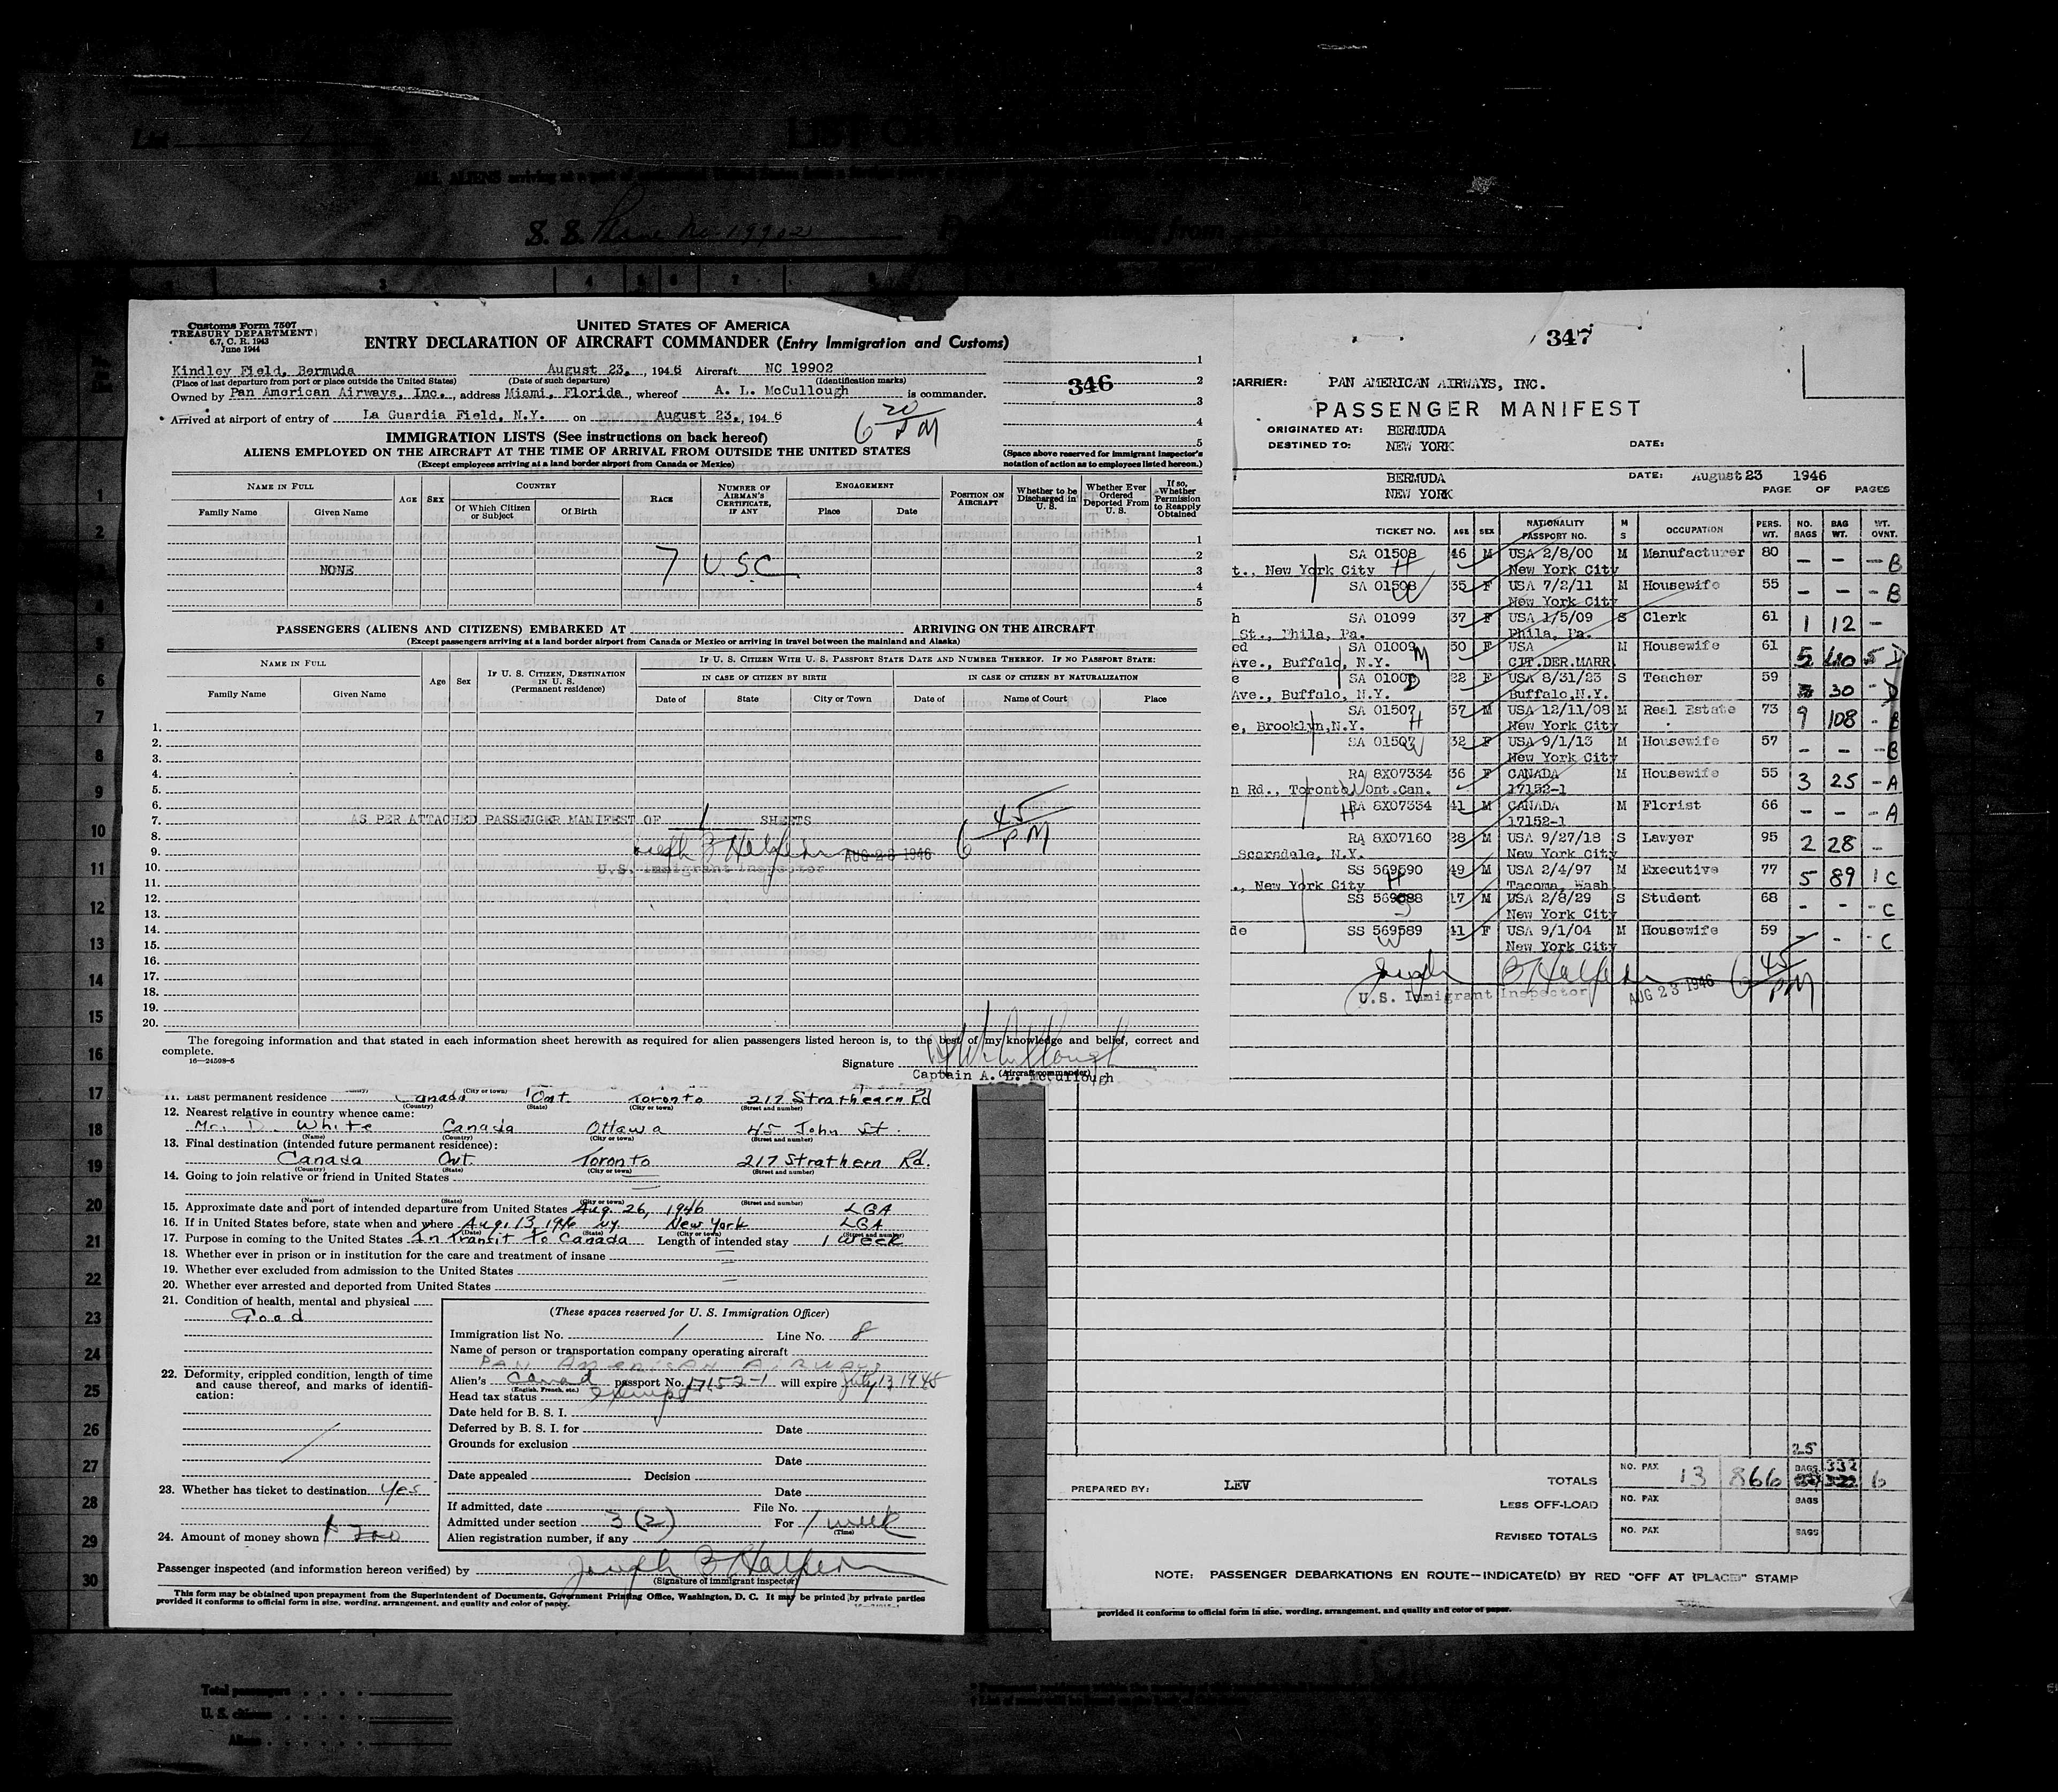 List
LIST OR
ALL ALIENS arriving at a port of continental United States from a foreign port
S. S. Plane No 19902
from
Customs Form 7507
TREASURY DEPARTMENT
6.7, C. R. 1943
June 1944
UNITED STATES OF AMERICA
ENTRY DECLARATION OF AIRCRAFT COMMANDER (Entry Immigration and Customs)
Kindley Field, Bermuda August 23, 1946 Aircraft NC 19902
(Place of last departure from port or place outside the United States) (Date of such departure) (Identification marks)
Owned by Pan American Airways, Inc., address Miami, Florida, whereof A. L. McCullough is commander.
Arrived at airport of entry of La Guardia Field, N.Y. on August 23, 1946
6 20 PM
1
2
346
3
4
5
(Space above reserved for immigrant inspector's
notation of action as to employees listed hereon.)
IMMIGRATION LISTS (See instructions on back hereof)
ALIENS EMPLOYED ON THE AIRCRAFT AT THE TIME OF ARRIVAL FROM OUTSIDE THE UNITED STATES
(Except employees arriving at a land border airport from Canada or Mexico)
NAME IN FULL AGE SEX COUNTRY RACE NUMBER OF AIRMAN'S CERTIFICATE, IF ANY ENGAGEMENT POSITION ON AIRCRAFT Whether to be Discharged in U. S. Whether Ever Ordered Deported From U. S. If so, Whether Permission to Reapply Obtained
Family Name Given Name Of Which Citizen or Subject Of Birth Place Date
1
2
NONE 7 U.S.C. 3
4
5
PASSENGERS (ALIENS AND CITIZENS) EMBARKED AT ARRIVING ON THE AIRCRAFT
(Except passengers arriving at a land border airport from Canada or Mexico or arriving in travel between the mainland and Alaska)
NAME IN FULL Age Sex IF U. S. CITIZEN, DESTINATION IN U. S. (Permanent residence) IF U. S. CITIZEN WITH U. S. PASSPORT STATE DATE AND NUMBER THEREOF. IF NO PASSPORT STATE:
IN CASE OF CITIZEN BY BIRTH IN CASE OF CITIZEN BY NATURALIZATION
Family Name Given Name Date of State City or Town Date of Name of Court Place
1.
2.
3.
4.
5.
6.
7. AS PER ATTACHED PASSENGER MANIFEST OF 1 SHEETS
8. 6 45 PM
9. Joseph B Halpern AUG 23 1946
10. U.S. Immigrant Inspector
11.
12.
13.
14.
15.
16.
17.
18.
19.
20.
The foregoing information and that stated in each information sheet herewith as required for alien passengers listed hereon is, to the best of my knowledge and belief, correct and
complete.
16—24598-5
Signature
(Aircraft commander)
Captain A. L. McCullough
11. Last permanent residence Canada Ont. Toronto 217 Strathearn Rd
(Country) (State) (City or town) (Street and number)
12. Nearest relative in country whence came:
Mr. D. White Canada Ottawa 45 John St.
(Name) (Country) (City or town) (Street and number)
13. Final destination (intended future permanent residence):
Canada Ont. Toronto 217 Strathern Rd.
(Country) (State) (City or town) (Street and number)
14. Going to join relative or friend in United States
(Name) (State) (City or town) (Street and number)
15. Approximate date and port of intended departure from United States Aug. 26, 1946 LGA
16. If in United States before, state when and where Aug. 13, 1946 NY. New York LGA
(Date) (State) (City or town) (Street and number)
17. Purpose in coming to the United States In Transit To Canada Length of intended stay 1 Week
18. Whether ever in prison or in institution for the care and treatment of insane
19. Whether ever excluded from admission to the United States
20. Whether ever arrested and deported from United States
21. Condition of health, mental and physical
Good
22. Deformity, crippled condition, length of time
and cause thereof, and marks of identifi-
cation:
23. Whether has ticket to destination Yes
24. Amount of money shown $ 200
(These spaces reserved for U. S. Immigration Officer)
Immigration list No. 1 Line No. 8
Name of person or transportation company operating aircraft
PAN AMERICAN AIRWAYS
Alien's Canad passport No. 17152-1 will expire July 13 1948
(English, French, etc.)
Head tax status exempt
Date held for B. S. I.
Deferred by B. S. I. for Date
Grounds for exclusion
Date
Date appealed Decision
Date
If admitted, date File No.
Admitted under section 3(2) For 1 week
(Time)
Alien registration number, if any
Passenger inspected (and information hereon verified) by Joseph B Halpern
(Signature of immigrant inspector)
This form may be obtained upon prepayment from the Superintendent of Documents, Government Printing Office, Washington, D. C. It may be printed by private parties
provided it conforms to official form in size, wording, arrangement, and quality and color of paper.
347
CARRIER: PAN AMERICAN AIRWAYS, INC.
PASSENGER MANIFEST
ORIGINATED AT: BERMUDA
DESTINED TO: NEW YORK DATE:
BERMUDA DATE: August 23 1946
NEW YORK PAGE OF PAGES
TICKET NO. AGE SEX NATIONALITY PASSPORT NO. M S OCCUPATION PERS. WT. NO. BAGS BAG WT. WT. OVNT.
SA 01508 46 M USA 2/8/00 M Manufacturer 80
t., New York City H New York City - - - B
SA 01508 35 F USA 7/2/11 M Housewife 55
W New York City - - - B
h SA 01099 37 F USA 1/5/09 S Clerk 61
St., Phila, Pa. Phila, Pa. 1 12 -
ed SA 01009 M 50 F USA M Housewife 61
Ave., Buffalo, N.Y. CIT.DER.MARR 5 40 5 D
e SA 0100 D 22 F USA 8/31/23 S Teacher 59
Ave., Buffalo, N.Y. Buffalo,N.Y. 30 - D
SA 01507 37 M USA 12/11/08 M Real Estate 73
e, Brooklyn,N.Y. H New York City 9 108 - B
SA 01507 32 F USA 9/1/13 M Housewife 57
W New York City - - - B
RA 8X07334 36 F CANADA M Housewife 55
n Rd., Toronto, Ont.Can. W 17152-1 3 25 - A
H RA 8X07334 41 M CANADA M Florist 66
17152-1 - - - A
RA 8X07160 28 M USA 9/27/18 S Lawyer 95
Scorsdale, N.Y. New York City 2 28 -
SS 569590 49 M USA 2/4/97 M Executive 77
., New York City H Tacoma, Wash 5 89 1 C
SS 569588 17 M USA 2/8/29 S Student 68
S New York City - - - C
de SS 569589 41 F USA 9/1/04 M Housewife 59
W New York City - - - C
Joseph B Halpern 6 45 PM
U.S. Immigrant Inspector AUG 23 1946
25
PREPARED BY: LEV TOTALS NO. PAX 13 866 BAGS 332 6
LESS OFF-LOAD NO. PAX BAGS
REVISED TOTALS NO. PAX BAGS
NOTE: PASSENGER DEBARKATIONS EN ROUTE--INDICATE(D) BY RED "OFF AT (PLACE)" STAMP
provided it conforms to official form in size, wording, arrangement, and quality and color of paper.
1
2
3
4
5
6
7
8
9
10
11
12
13
14
15
16
17
18
19
20
21
22
23
24
25
26
27
28
29
30
Total passengers
U. S. citizens
Aliens